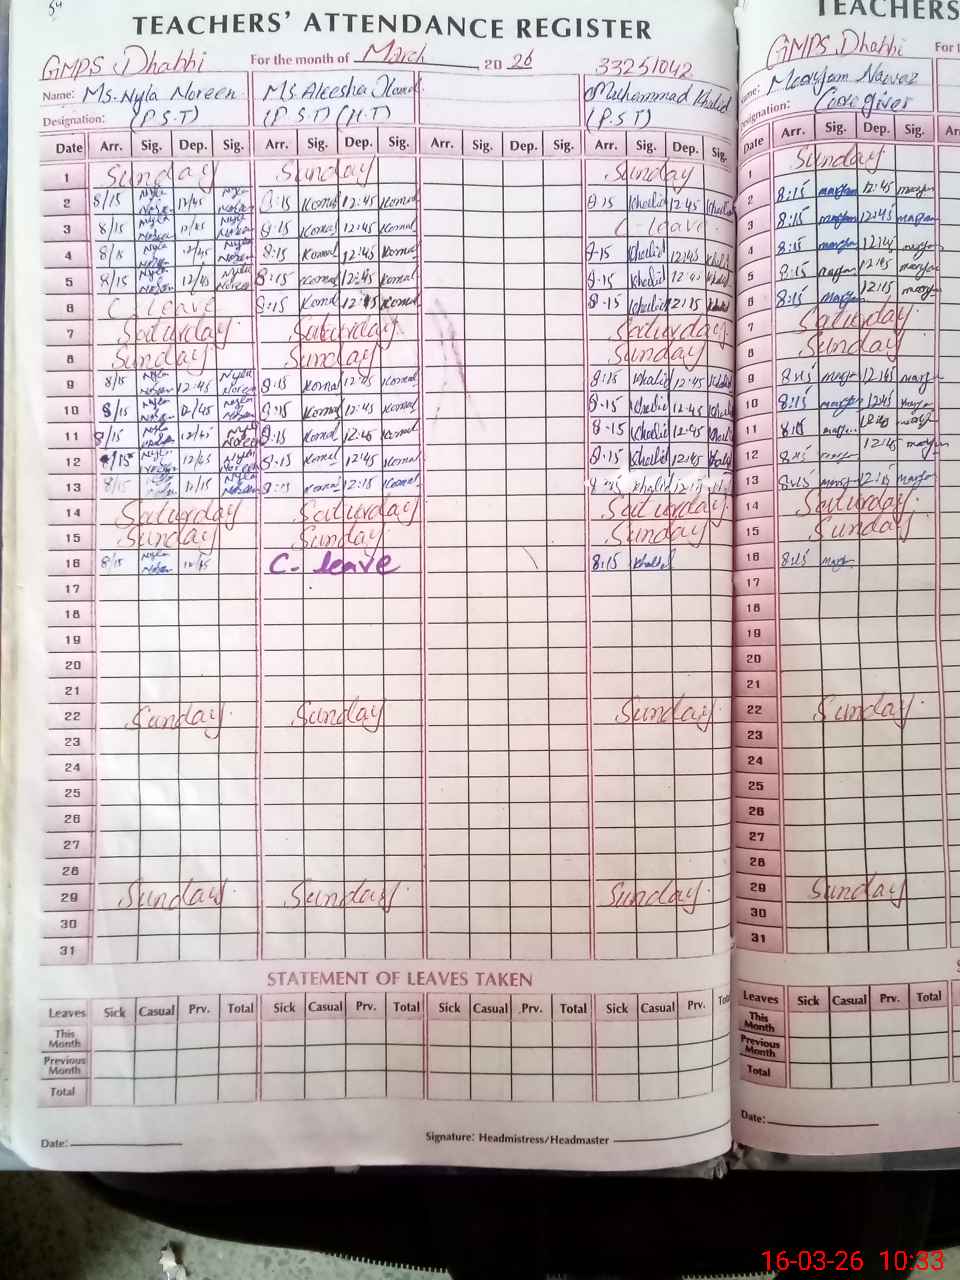 54
TEACHERS' ATTENDANCE REGISTER
GMPS Dhabbi For the month of March 2026 33251042
Name: Ms. Nyla Noreen Ms. Aleesha Muhammad Khalid
Designation: (P.S.T) (P.S.T) (H.T) (P.S.T)
Date Arr. Sig. Dep. Sig. Arr. Sig. Dep. Sig. Arr. Sig. Dep. Sig. Arr. Sig. Dep. Sig.
1 Sunday Sunday Sunday
2 8/15 Nyla Noreen 12/45 Nyla Noreen 8:15 Komal 12:45 Komal 8:15 Khalid 12:45 Khalid
3 8/15 Nyla Noreen 12/45 Nyla Noreen 8:15 Komal 12:45 Komal C-leave
4 8/15 Nyla Noreen 12/45 Nyla Noreen 8:15 Komal 12:45 Komal 8-15 Khalid 12:45 Khalid
5 8/15 Nyla Noreen 12/45 Nyla Noreen 8:15 Komal 12:45 Komal 8-15 Khalid 12:45 Khalid
6 C leave 8:15 Komal 12:15 Komal 8-15 Khalid 12:15 Khalid
7 Saturday Saturday Saturday
8 Sunday Sunday Sunday
9 8/15 Nyla Noreen 12:45 Nyla Noreen 8:15 Komal 12:45 Komal 8:15 Khalid 12:45 Khalid
10 8/15 Nyla Noreen 12/45 Nyla Noreen 8:15 Komal 12:45 Komal 8-15 Khalid 12:45 Khalid
11 8/15 Nyla Noreen 12/45 Nyla Noreen 8:15 Komal 12:45 Komal 8-15 Khalid 12:45 Khalid
12 8/15 Nyla Noreen 12/45 Nyla Noreen 8:15 Komal 12:45 Komal 8-15 Khalid 12:45 Khalid
13 8/15 Nyla Noreen 12/15 Nyla Noreen 8:15 Komal 12:15 Komal Khalid 12:15
14 Saturday Saturday Saturday
15 Sunday Sunday Sunday
16 8/15 Nyla Noreen 12/45 C. leave 8:15 Khalid
17
18
19
20
21
22 Sunday Sunday Sunday
23
24
25
26
27
28
29 Sunday Sunday Sunday
30
31
STATEMENT OF LEAVES TAKEN
Leaves Sick Casual Prv. Total Sick Casual Prv. Total Sick Casual Prv. Total Sick Casual Prv.
This Month
Previous Month
Total
Date: Signature: Headmistress/Headmaster
TEACHERS'
GMPS Dhabbi
Maryam Nawaz
Designation: Care giver
Date Arr. Sig. Dep. Sig. Arr.
1 Sunday
2 8:15 maryam 12:45 maryam
3 8:15 maryam 12:45 maryam
4 8:15 maryam 12:45 maryam
5 8:15 maryam 12:45 maryam
6 8:15 maryam 12:15 maryam
7 Saturday
8 Sunday
9 8:15 maryam 12:45 maryam
10 8:15 maryam 12:45 maryam
11 8:15 maryam 12:45 maryam
12 8:15 12:45 maryam
13 8:15 maryam 12:15 maryam
14 Saturday
15 Sunday
16 8:15 maryam
17
18
19
20
21
22 Sunday
23
24
25
26
27
28
29 Sunday
30
31
Leaves Sick Casual Prv. Total
This Month
Previous Month
Total
Date:
16-03-26 10:33